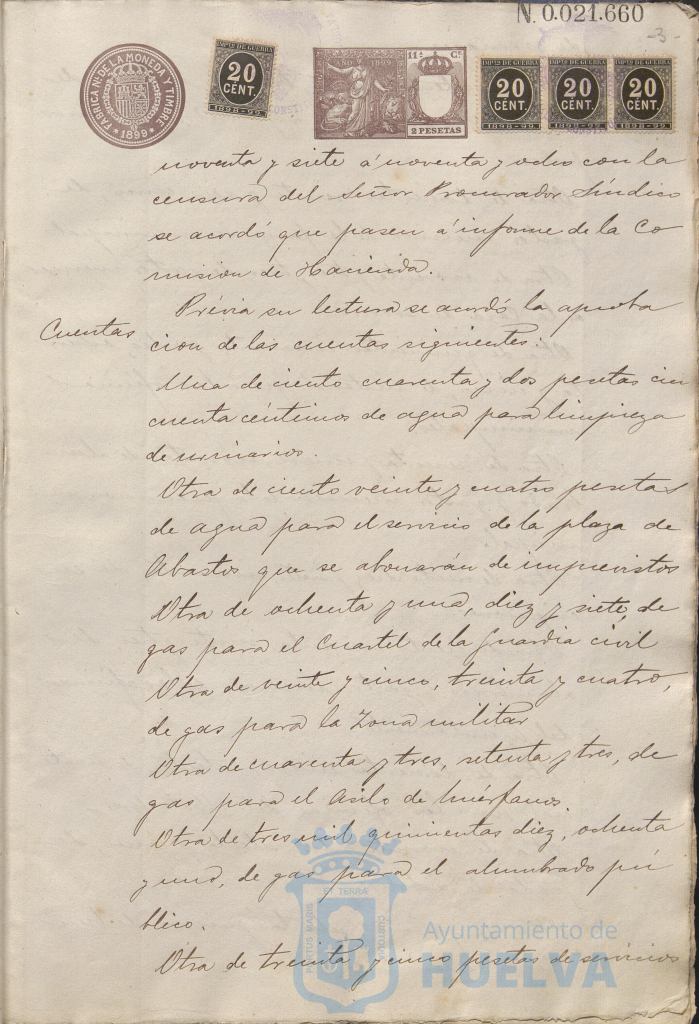 N. 0.021.660
-3-
FABRICA NL. DE LA MONEDA Y TIMBRE
* 1899 *
IMPTO DE GUERRA
20
CÉNT.
1898-99
AÑO 1899
11ª Cª
2 PESETAS
IMPTO DE GUERRA
20
CÉNT.
1898-99
IMPTO DE GUERRA
20
CÉNT.
1898-99
IMPTO DE GUERRA
20
CÉNT.
1898-99
noventa y siete á noventa y ocho con la
censura del Señor Procurador Síndico
se acordó que pasen á informe de la Co
mision de Hacienda.
Cuentas
Prévia su lectura se acordó la aproba
cion de las cuentas siguientes:
Una de ciento cuarenta y dos pesetas cin
cuenta céntimos de agua para limpieza
de urinarios.
Otra de ciento veinte y cuatro pesetas
de agua para el servicio de la plaza de
Abastos que se abonarán de imprevistos
Otra de ochenta y una, diez y siete, de
gas para el Cuartel de la Guardia civil
Otra de veinte y cinco, treinta y cuatro,
de gas para la Zona militar
Otra de cuarenta y tres, setenta y tres, de
gas para el Asilo de huérfanos.
Otra de tres mil quinientas diez, ochenta
y una, de gas para el alumbrado pú
blico.
Otra de treinta y cinco pesetas de servicios
PORTUS MARIS
ET TERRÆ
CUSTODIA
Ayuntamiento de
HUELVA